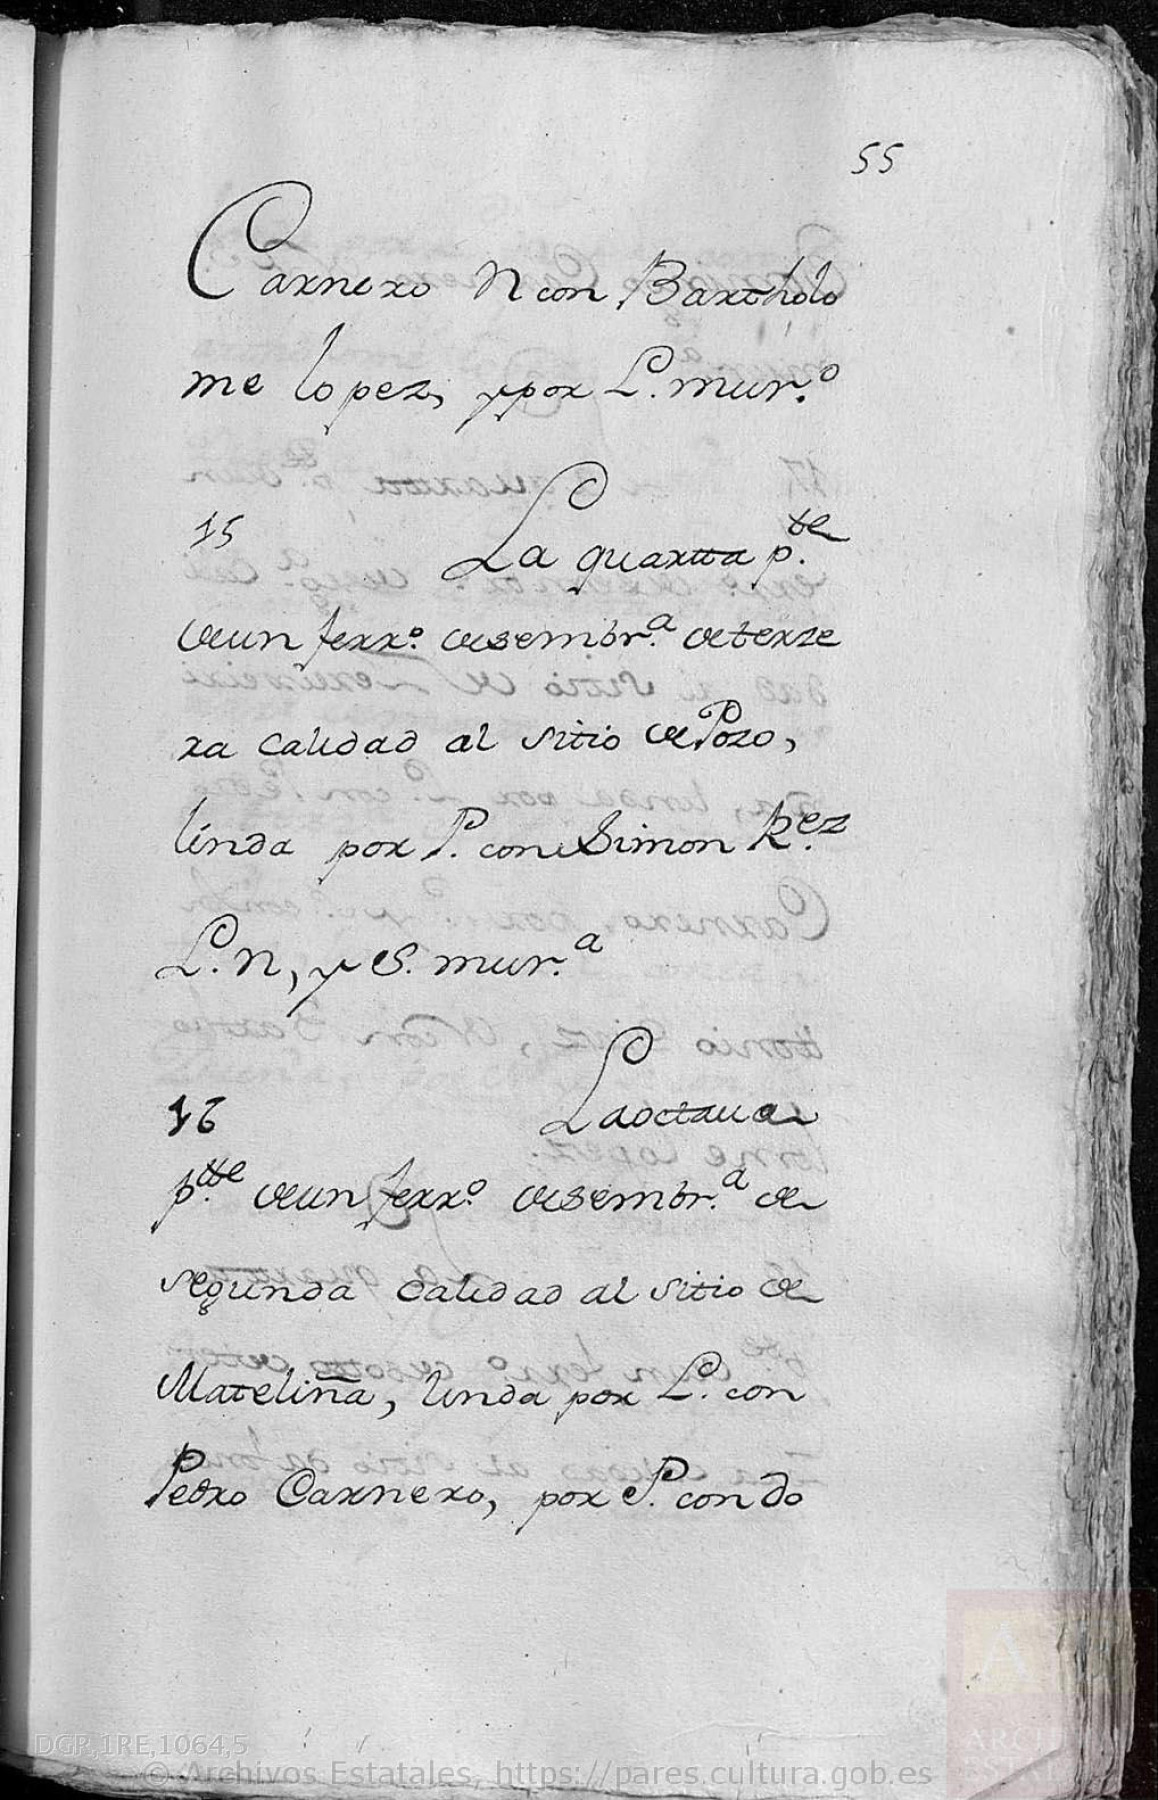 55
Carnero N con Bartholo
me lopez, y por L. mur.o
15 La quartta p.tte
de un ferr.o de sembr.a de terze
ra calidad al sitio de Pozo,
linda por P. con Simon Rez
L. N, y S. mur.a
16 La octaua
p.tte de un ferr.o de sembr.a de
segunda calidad al sitio de
Mateliña, linda por L. con
Pedro Carnero, por P. con do
DGR,1RE,1064,5
© Archivos Estatales, https://pares.cultura.gob.es